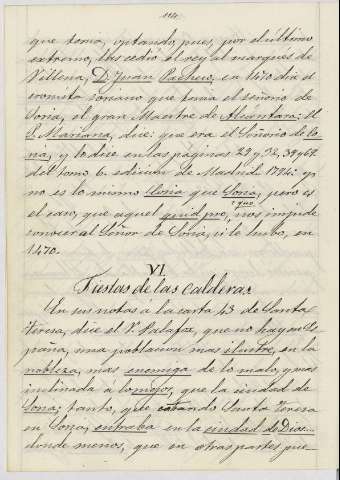 114.
que tomó, optando, pues, por el último
extremo, las cedió el rey al marqués de
Villena, D. Juan Pacheco, en 1470 dia el
cronista soriano que tenía el señorío de
Soria, el gran Maestre de Alcántara: El
P. Mariana, dice: que era el Señorío de Co
ria, y lo dice en las páginas 29 y 32, 39 y 69
del tomo 6. edicion de Madrid 1794: y
no es lo mismo Coria que Soria, pero es
el caso, que aquel quid pro quo, nos impide
conocer al Señor de Soria, si le hubo, en
1470.
VI.
Fiestas de las Calderas
En sus notas á la carta 43 de Santa
Teresa, dice el V. Palafox, que no hay en Es-
paña, una poblacion mas ilustre, en la
nobleza, mas enemiga de lo malo, y mas
inclinada á lo mejor, que la ciudad de
Soria; tanto, que estando Santa Teresa
en Soria, entraba en la ciudad de Dios...
donde menos, que en otras partes que